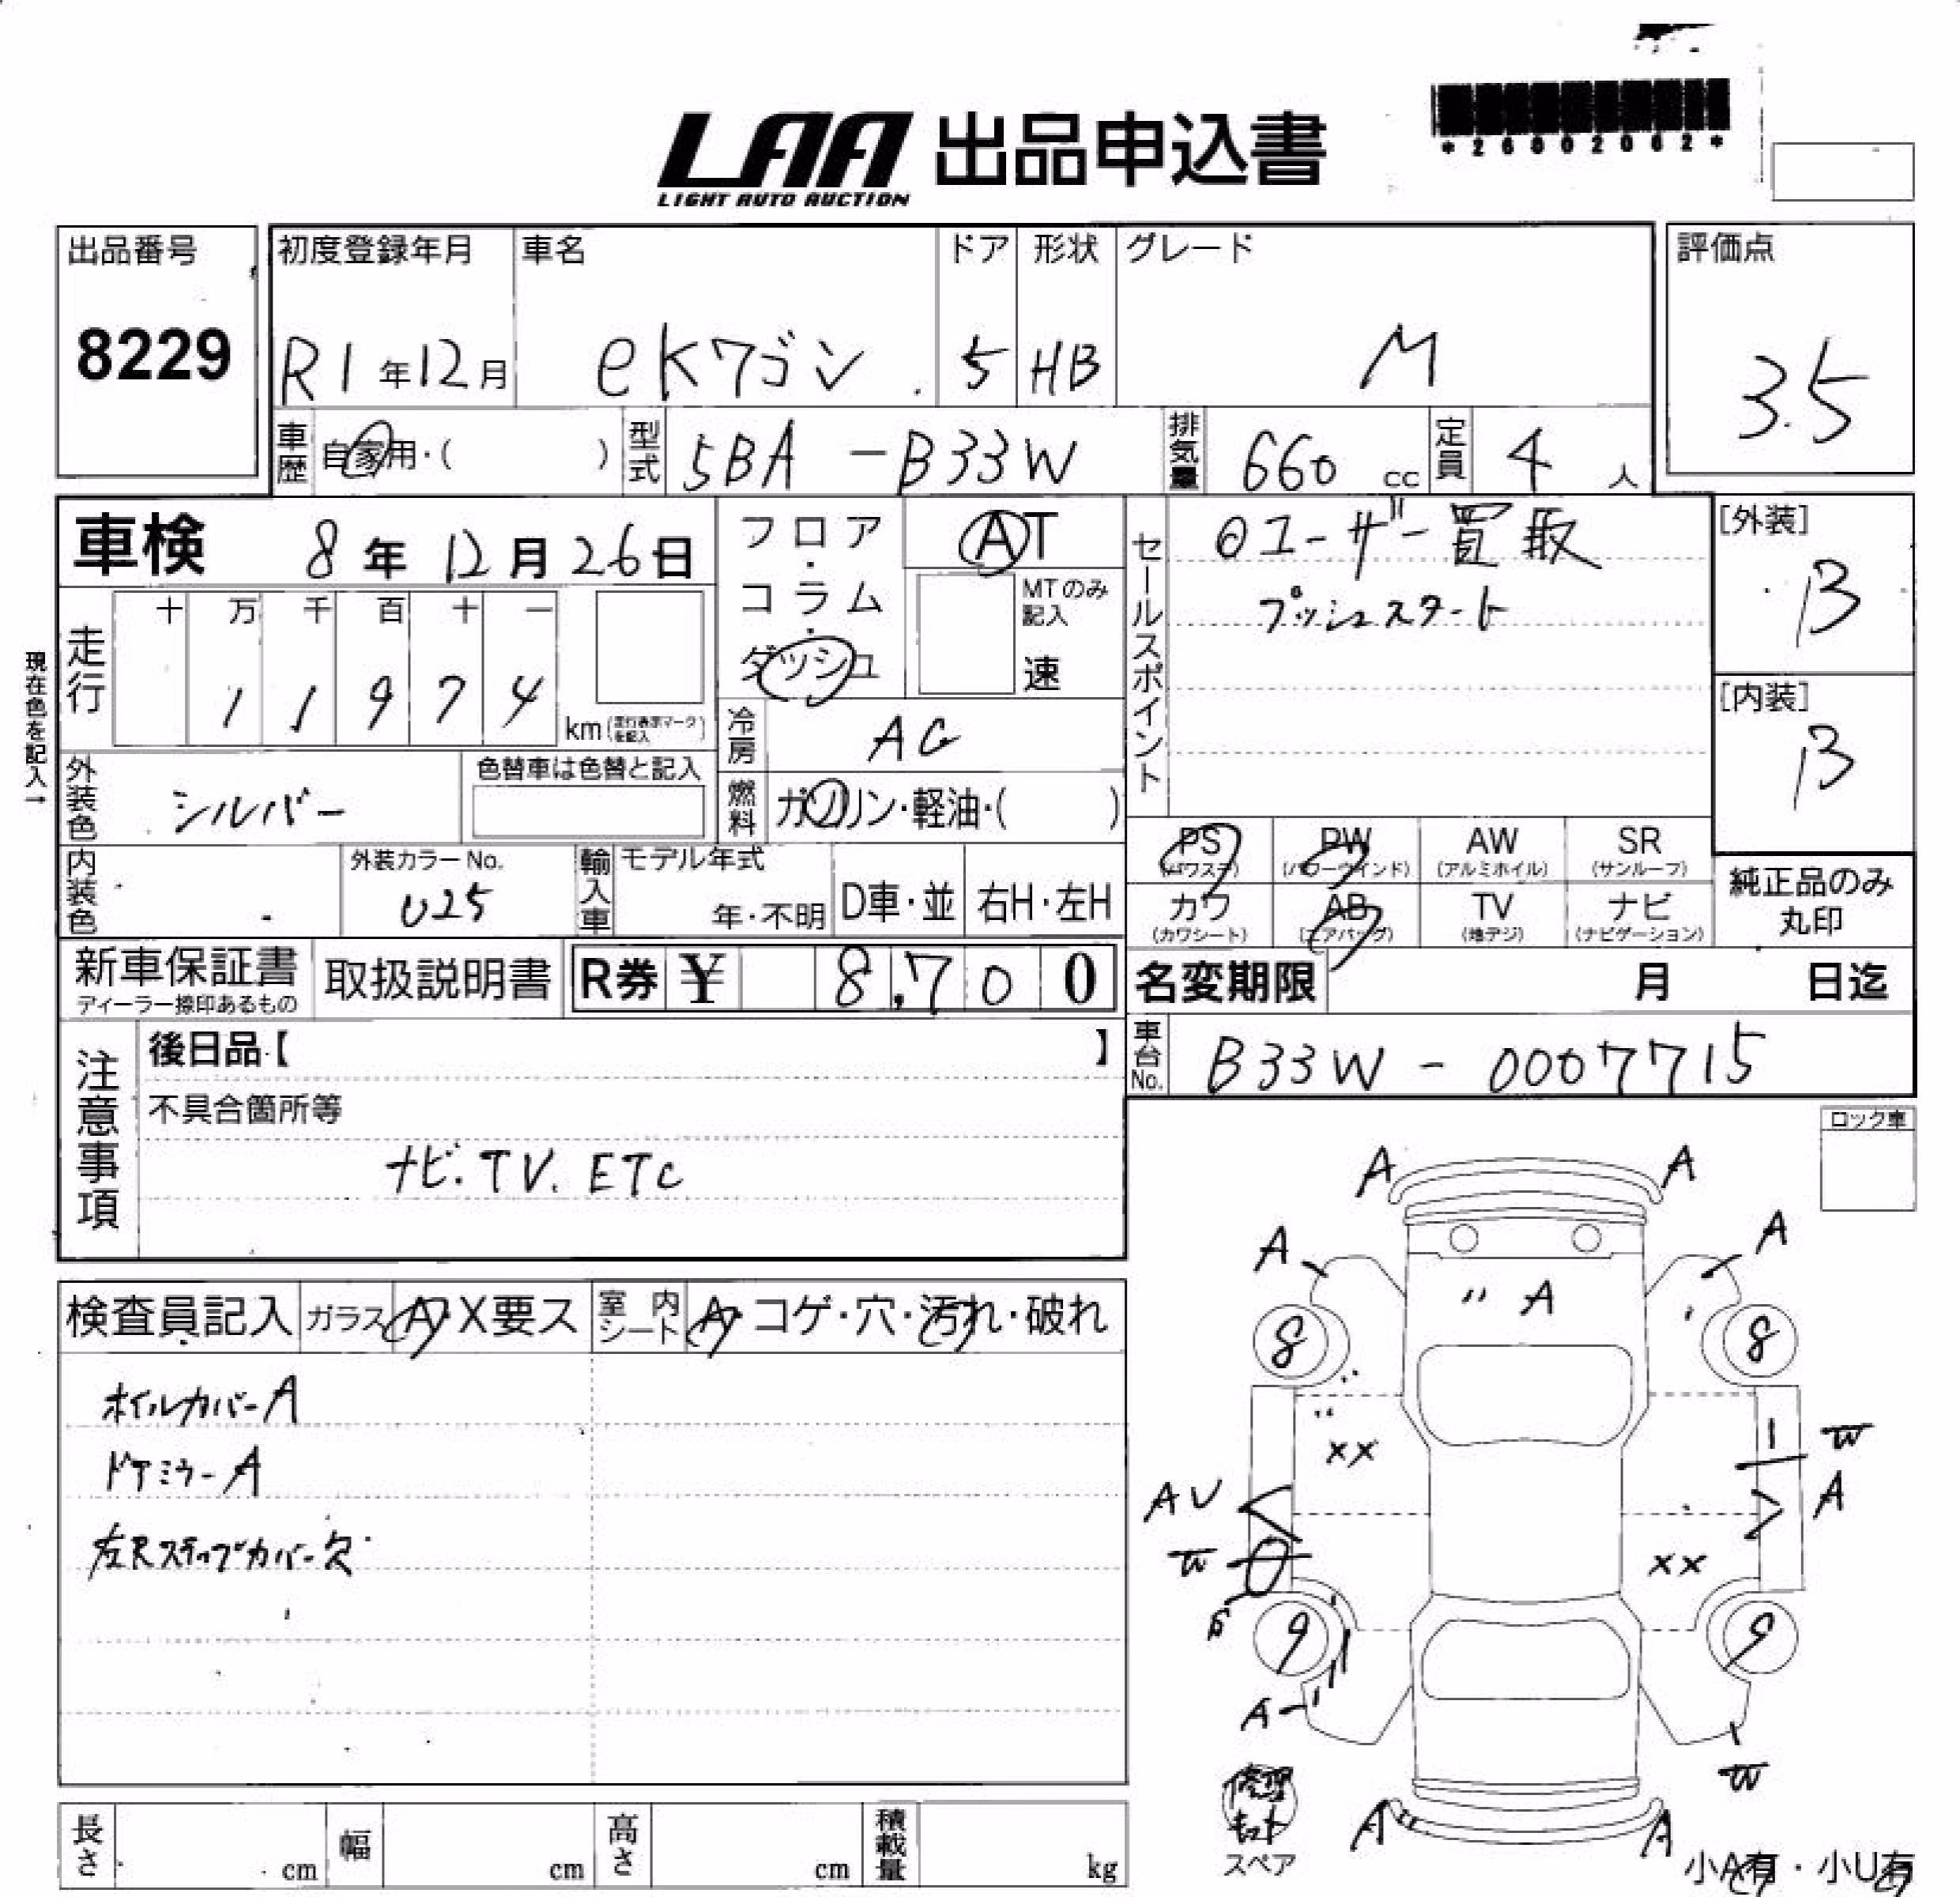 LAA 出品申込書
LIGHT AUTO AUCTION
*26002062*
出品番号
8229
初度登録年月
R1年12月
車名
eKワゴン
ドア
5
形状
HB
グレード
M
評価点
3.5
車歴 自家用・( )
型式 5BA-B33W
排気量 660 cc
定員 4 人
車検 8年12月26日
フロア・コラム・ダッシュ
AT
MTのみ記入
速
セールスポイント
◎ユーザー買取
プッシュスタート
[外装]
B
[内装]
B
現在色を記入→
走行
十 万 千 百 十 一
1 1 9 7 4
km(走行表示マークを記入)
冷房 AC
燃料 ガソリン・軽油・( )
外装色 シルバー
色替車は色替と記入
内装色
外装カラーNo.
U25
輸入車
モデル年式
年・不明
D車・並
右H・左H
PS (パワステ)
PW (パワーウインド)
AW (アルミホイル)
SR (サンルーフ)
カワ (カワシート)
AB (エアバッグ)
TV (地デジ)
ナビ (ナビゲーション)
純正品のみ丸印
新車保証書
ディーラー捺印あるもの
取扱説明書
R券 ¥ 8,700
名変期限 月 日迄
車台No. B33W-0007715
注意事項
後日品【 】
不具合箇所等
ナビ.TV.ETC
ロック車
検査員記入
ガラス A・X要ス
室内シート A・コゲ・穴・汚れ・破れ
ホイルカバーA
ドアミラーA
左Rステップカバー欠
A A
A A
A
8 8
XX
W
AU A
W XX
S
9 9
A
W
修理キット
スペア
A A
小A有・小U有
長さ cm
幅 cm
高さ cm
積載量 kg